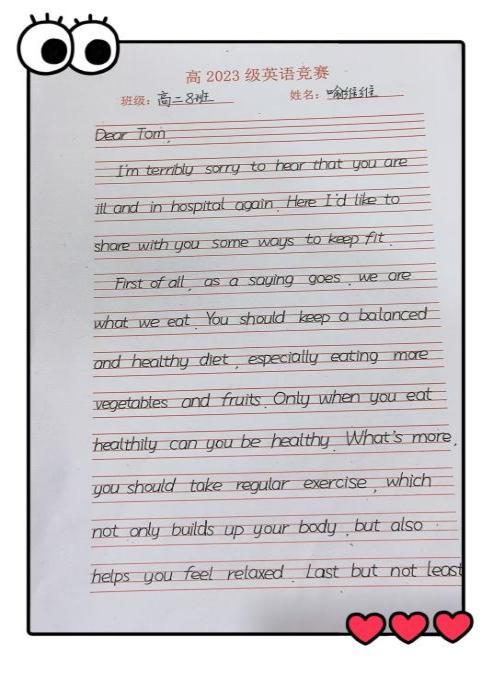 高 2023 级英语竞赛
班级：高二8班 姓名：喻维维
Dear Tom,
I'm terribly sorry to hear that you are
ill and in hospital again. Here I'd like to
share with you some ways to keep fit.
First of all, as a saying goes, we are
what we eat. You should keep a balanced
and healthy diet, especially eating more
vegetables and fruits. Only when you eat
healthily can you be healthy. What's more,
you should take regular exercise, which
not only builds up your body, but also
helps you feel relaxed. Last but not least